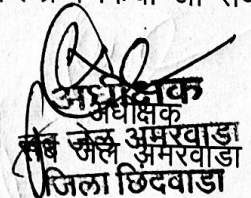 अधीक्षक
अधीक्षक
सब जेल अमरवाडा
सब जेल अमरवाडा
जिला छिंदवाडा